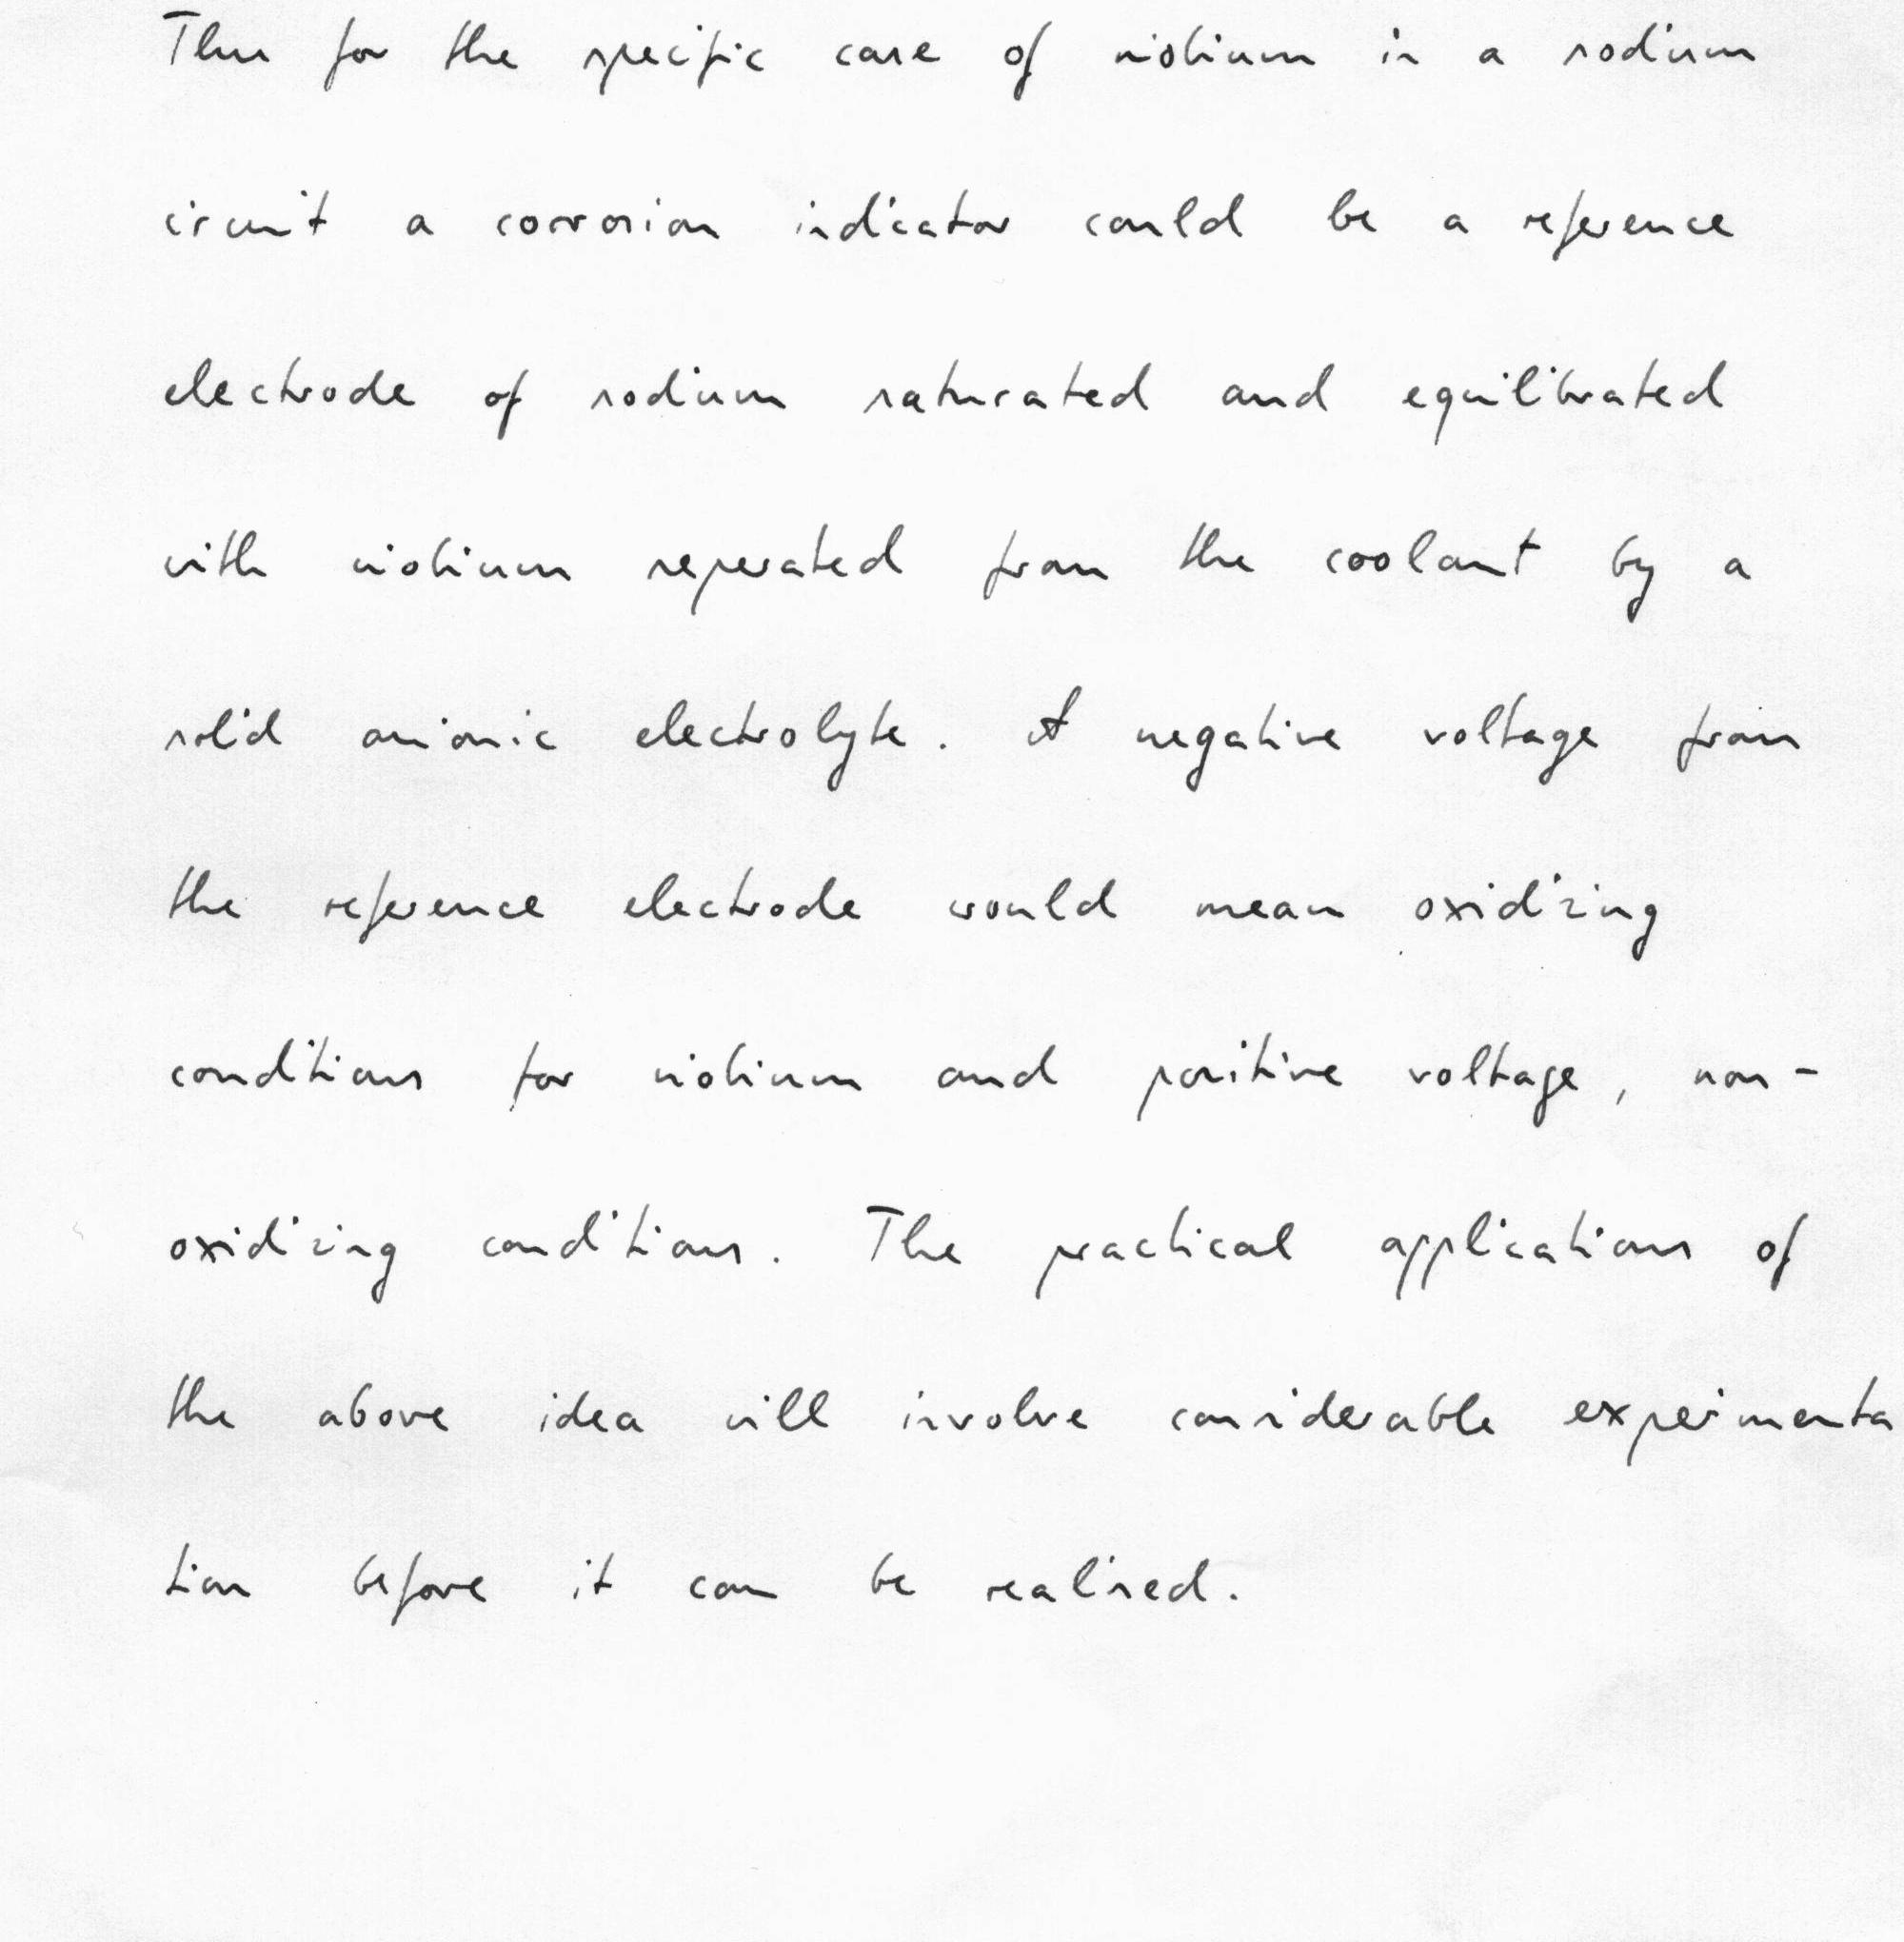 Thus for the specific case of niobium in a sodium
circuit a corrosion indicator could be a reference
electrode of sodium saturated and equilibrated
with niobium seperated from the coolant by a
solid anionic electrolyte. A negative voltage from
the reference electrode would mean oxidizing
conditions for niobium and positive voltage, non-
oxidizing conditions. The practical applications of
the above idea will involve considerable experimenta
tion before it can be realised.